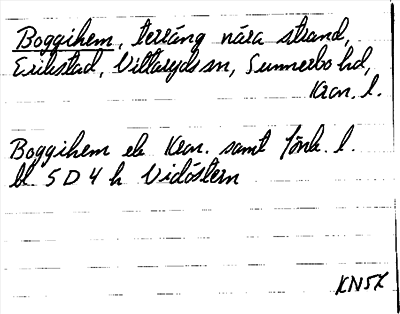 Boggihem, terräng nära strand,
Erikstad, Vittaryds sn, Sunnerbo hd,
Kron. l.
Boggihem ek Kron. samt Jönk. l.
bl. 5 D 4 h Vidöstern
KN5X